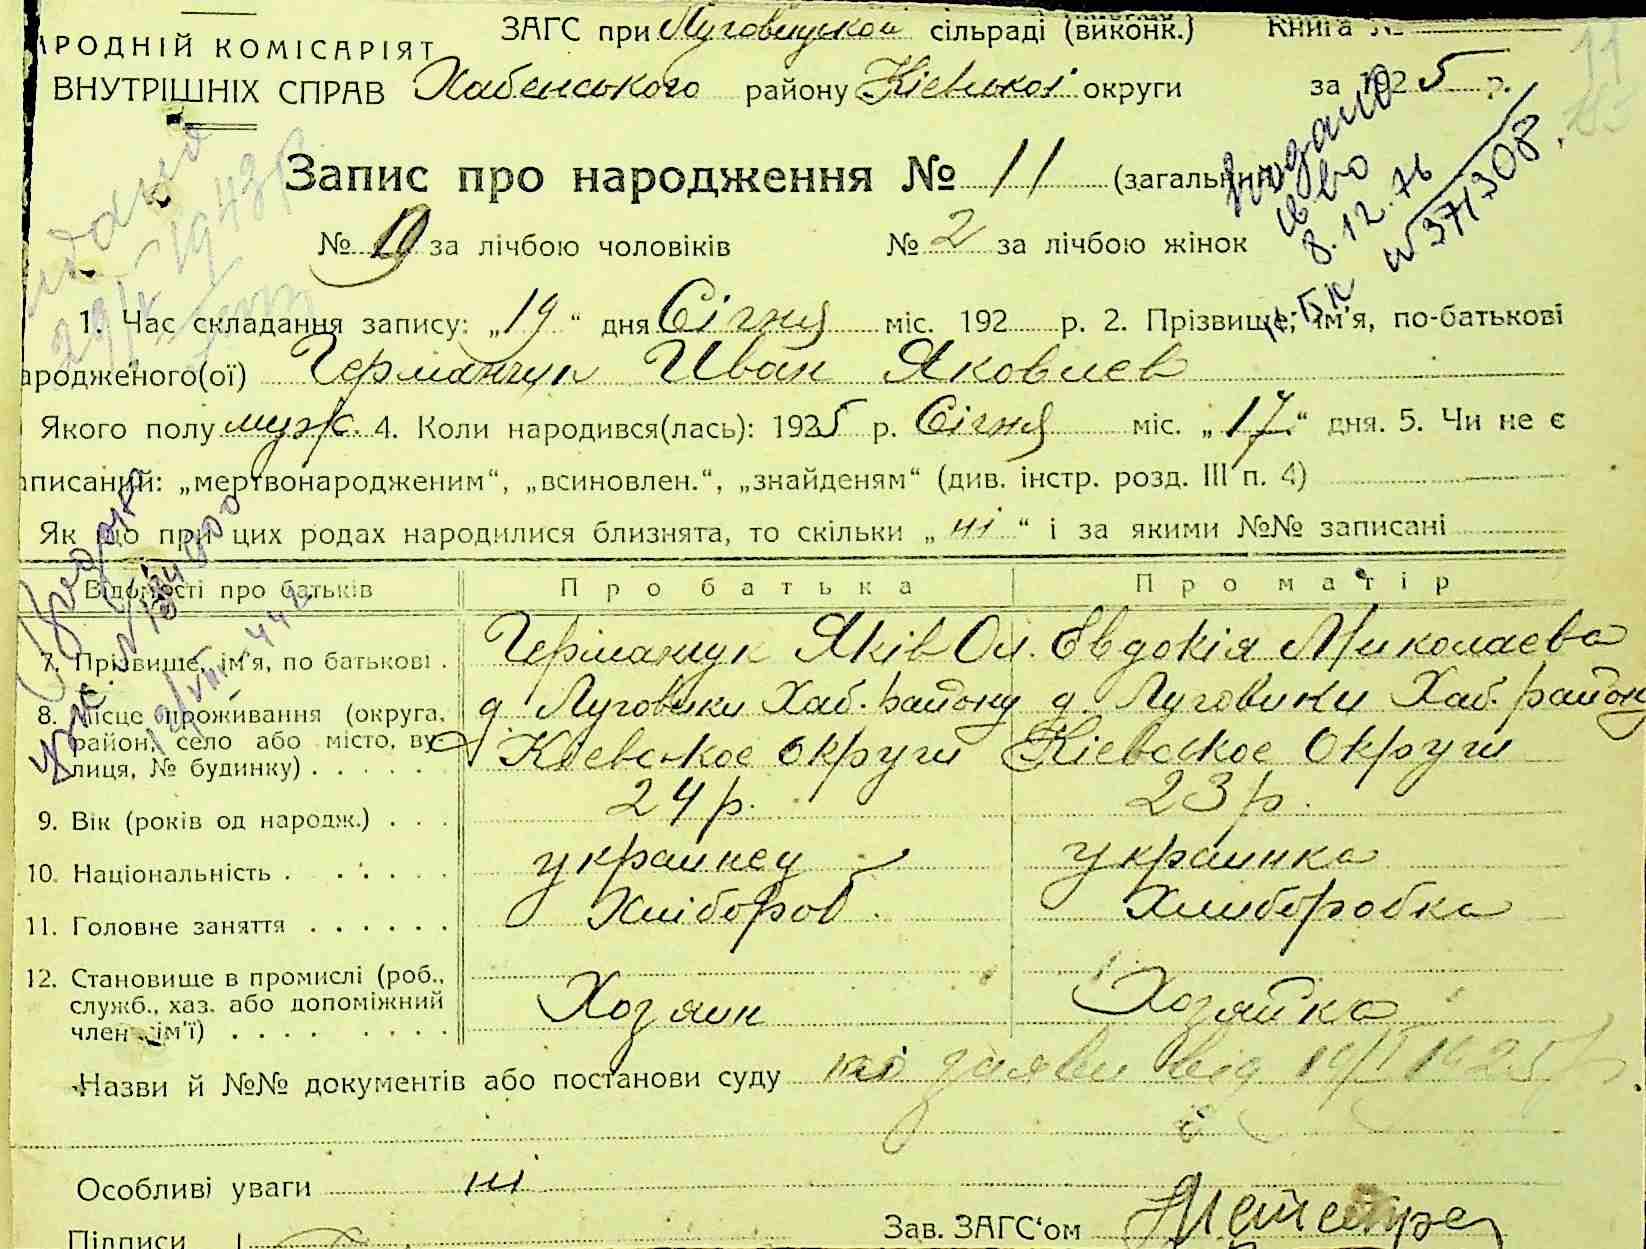 ЗАГС при Луговицской сільраді (виконк.) Книга №
АРОДНІЙ КОМІСАРІЯТ
ВНУТРІШНІХ СПРАВ Хабенського району Кіевської округи за 1925 р.
Запис про народження № 11 (загальний)
№ за лічбою чоловіків № 2 за лічбою жінок
Видано
св во
8.12.76
371308
1. Час складання запису: „19“ дня Сігня міс. 192 р. 2. Прізвище, ім'я, по-батькові
ародженого(ої) Германчук Иван Яковлев
Якого полу муж. 4. Коли народився(лась): 1925 р. Сігня міс. „17“ дня. 5. Чи не є
аписаний: „мертвонародженим“, „всиновлен.“, „знайденям“ (див. інстр. розд. III п. 4)
Як що при цих родах народилися близнята, то скільки „ні“ і за якими №№ записані
Відомості про батьків Про батька Про матір
7. Прізвище, ім'я, по батькові . Германчук Яків Ол. Евдокія Миколаева
8. Місце проживання (округа, д. Луговики Хаб. району д. Луговики Хаб. району
район, село або місто, ву- Кіевское округи Кіевское округи
лиця, № будинку) . . . . .
9. Вік (років од народж.) . . . 24 р. 23 р.
10. Національність . . . . . . украинец украинка
11. Головне заняття . . . . . . Хлібороб Хлиборобка
12. Становище в промислі (роб.,
служб., хаз. або допоміжний Хозяин Хозяйка
член сім'ї) . . . . . . . .
Назви й №№ документів або постанови суду по заяви від 19/I 1925 р.
Особливі уваги ні
Підписи Зав. ЗАГС'ом